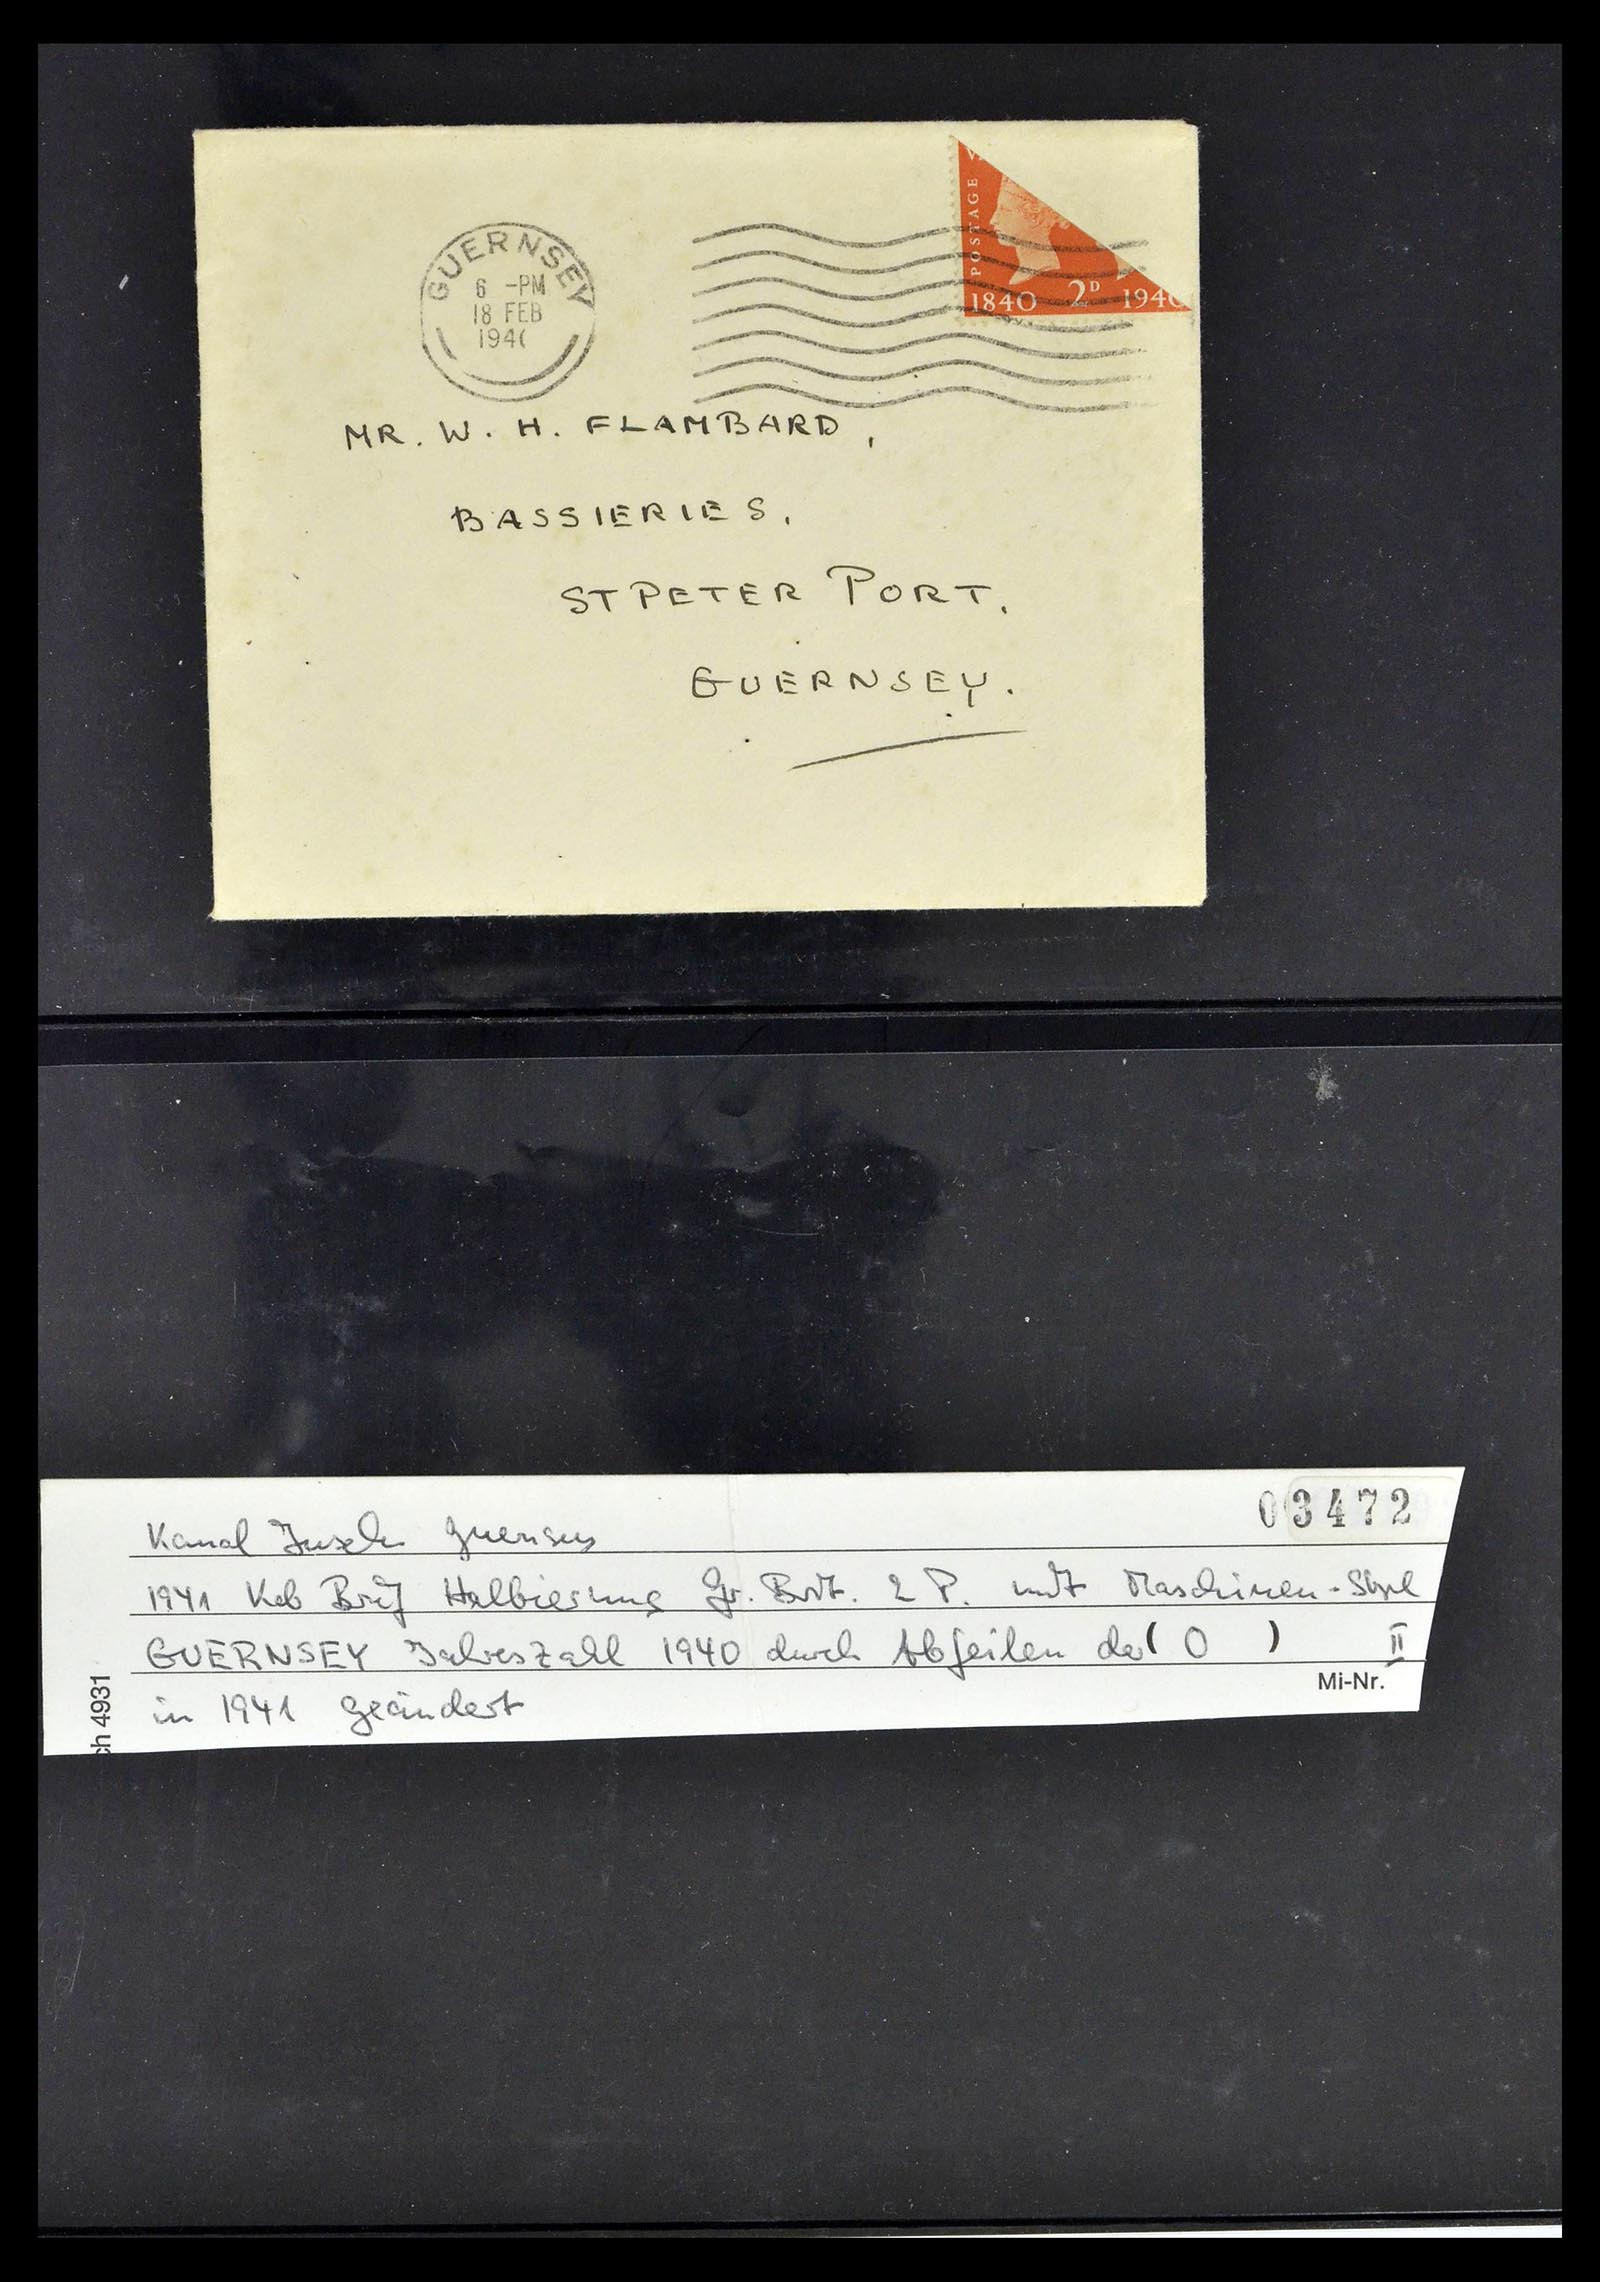 POSTAGE
1840 2D 194
GUERNSEY
6 -PM
18 FEB
194(
MR. W. H. FLAMBARD,
BASSIERIES,
ST PETER PORT.
GUERNSEY.
03472
Kanal Inseln Guernsey
1941 Brief Halbierung Gr. Brit. 2 P. mit Maschinen-Stpl
GUERNSEY Jahreszahl 1940 durch Abfeilen der ( 0 ) II
Mi-Nr.
in 1941 geändert
ch 4931